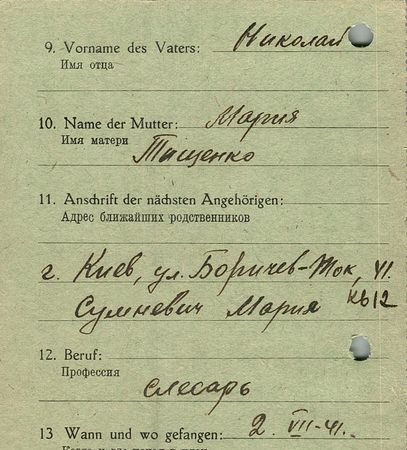 9. Vorname des Vaters: Николай
Имя отца
10. Name der Mutter: Мария
Имя матери
Тищенко
11. Anschrift der nächsten Angehörigen:
Адрес ближайших родственников
г. Киев, ул. Боричев-Ток, VI.
Сумневич Мария кв 12
12. Beruf:
Профессия
слесарь
13 Wann und wo gefangen: 2. VII-41.